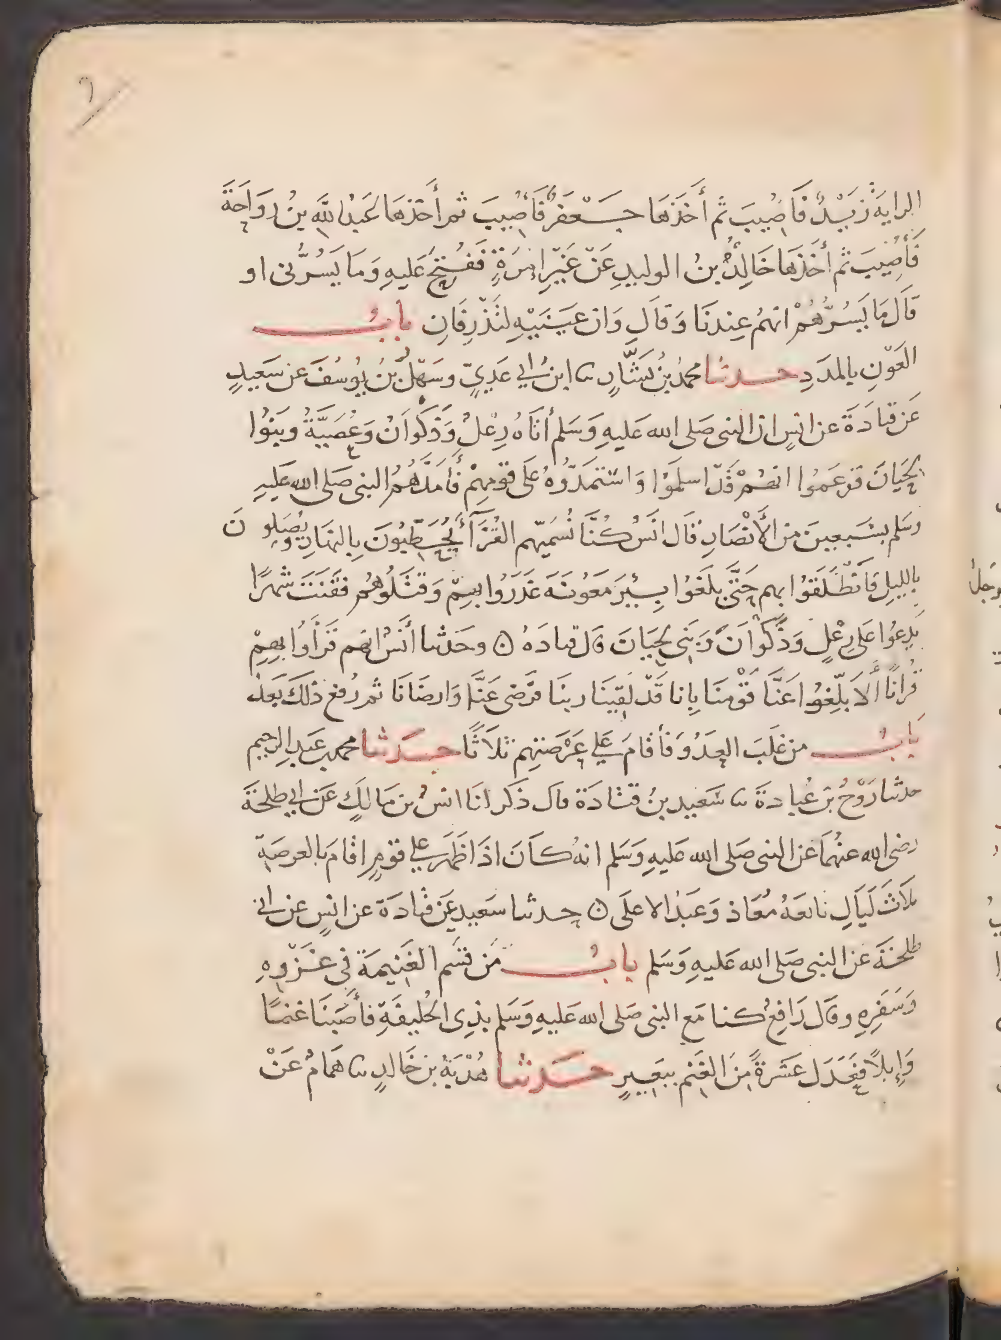 ٦
الرايةَ زَيْدٌ فَأُصِيبَ ثم أخَذَهَا جَعْفَرٌ فَأُصِيبَ ثم أَخَذهَا عَبدُ اللّه بنُ رَوَاحَةَ
فَأُصِيبَ ثم أخَذَهَا خَالِدُ بنُ الوليدِ عَنْ غَيْرِ إمْرَةٍ فَفُتِحَ عَلَيهِ وَمَا يَسُرُّنى او
قَالَ مَا يَسُرُّهُمْ انهمُ عِندنَا وَقَالَ وَان عَينَيْهِ لتَذْرِفَانِ بابُ
العَوْنِ بالمدَدِ حدثنا محمدُ بنُ بَشَّارٍ نا ابن ابي عَدِيّ وسَهْلُ بنُ يُوسُفَ عن سَعِيدٍ
عَن قتادَةَ عن انسٍ ان النبى صَلى الله عَليهِ وَسَلم أتَاهُ رِعْلٌ وَذَكْوَانُ وَعُصَيَّةُ وبَنُوا
لِحْيَانَ فزعَمُوا انهُمْ قَدْ اسلمَوُا وَاسْتَمَدّوهُ عَلَى قومِهِمْ فَأَمَدَّهُمُ النبى صَلى الله عَليهِ
وسَلم بسَبعِينَ من الأَنْصَارِ قَال انَسٌ كُنَّا نُسَمِّيهم القُرَّآءَ يَحْطِبُونَ بِالنهَارِ وَيُصَلونَ
بِالليلِ فَانْطَلَقُوا بهم حَتَّى بلَغُوا بِئْرَ مَعُونَةَ غَدَرُوا بهِمْ وَقتَلُوهُم فَقَنَتَ شَهرًا
يَدعُوا عَلى رِعْلٍ وَذَكْوَانَ وَبَنِى لِحْيَانَ قال قتادَهُ ۞ وحَدثنا أَنَسٌ انهم قَرَأوُا بهِمِْ
قُرانًا أَلاَ بَلِّغُوا عَنَّا قَوْمَنَا بِانا قَدْ لَقِينَا ربنَا فرَضى عَنَّا وَارضَانَا ثم رُفعَ ذلكَ بَعدُ
بَابُ من غلَبَ العَدُوَ فَأقَامَ على عَرْصَتِهم ثلاَثًا حدثنا محمد بن عَبدِ الرحِيم
حدثنا رَوْحُ بن عُبادةَ نا سَعِيد بنُ قتادَةَ قال ذكَرَ لنَا انَسُ بن مَالِكٍ عَن ابي طلحَةَ
رضى الله عنهُمَا عَن النبى صَلى الله عَليهِ وَسَلم انهُ كَانَ اذَا ظَهَرَ على قومٍ اقَامَ بالعرصَةِ
ثلاَثَ لَيَالٍ تابعَهُ مُعَاذ وَعَبدُ الاعلَى ۞ حدثنا سَعيد عَن قتَادَةَ عن انسٍ عن ابى
طلحَةَ عَن النبى صَلى الله عَليهِ وَسَلم بابُ مَن قسَمَ الغَنِيمَةَ فِى غَزْوِهِ
وَسَفَرِهِ وقال رَافعُ كُنا مَع النبى صَلى الله عَليهِ وَسَلم بذِى الحُليفَةِ فأَصَبنَا غنمًا
وَإبلاً فَعَدَلَ عَشَرةً مِنَ الغَنَم ببَعِيرٍ حدثنا هُدْبَةُ بن خَالدٍ نا همامٌ عَنْ